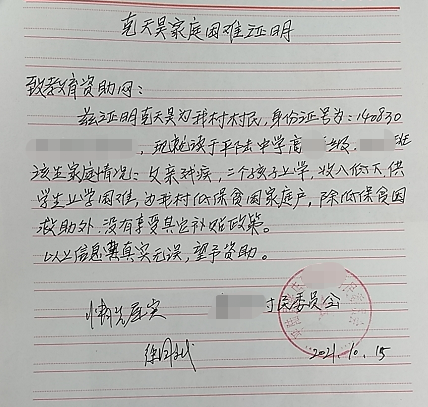 克天昊家庭困难证明
致教育资助网：
兹证明克天昊为我村村民，身份证号为：140830
，现就读于平陆中学高 级 班
该生家庭情况：父亲残疾，二个孩子上学，收入低下供
学生上学困难，为我村低保贫困家庭户，除低保贫困
救助外，没有享受其它补贴政策。
以上信息真实无误，望予资助。
情况属实
村民委员会
2021.10.15